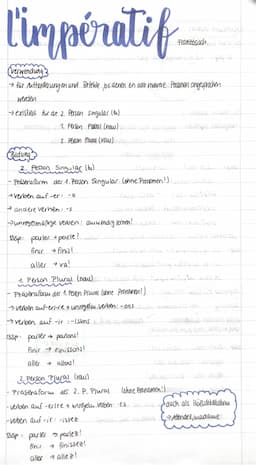 l'impératif
Französisch
Verwendung
→ für Aufforderungen und Befehle, bei denen ein oder mehrere Personen angesprochen
werden
→ existiert für die 2. Person Singular (tu)
1. Person Plural (nous)
2. Person Plural (vous)
Bildung
2. Person Singular (tu)
- Präsensform der 1. Person Singular (ohne Pronomen!)
→ Verben auf -er: -e
→ andere Verben: -s
→ unregelmäßige Verben: auswendig lernen!
Bsp: parler → parle!
finir → finis!
aller → va!
1. Person Plural (nous)
- Präsensform der 1. Person Plural (ohne Pronomen!)
→ Verben auf -er/-re + unregelm. Verben: -ons
→ Verben auf -ir: -issons
Bsp: parler → parlons!
finir → finissons!
aller → allons!
2. Person Plural (vous)
- Präsensform der 2. P. Plural (ohne Pronomen!)
- Verben auf -er/-re + unregelm. Verben: -ez
- Verben auf -ir: -issez
Bsp: parler → parlez!
finir → finissez!
aller → allez!
auch als Höflichkeitsform
→ Attendez, madame!